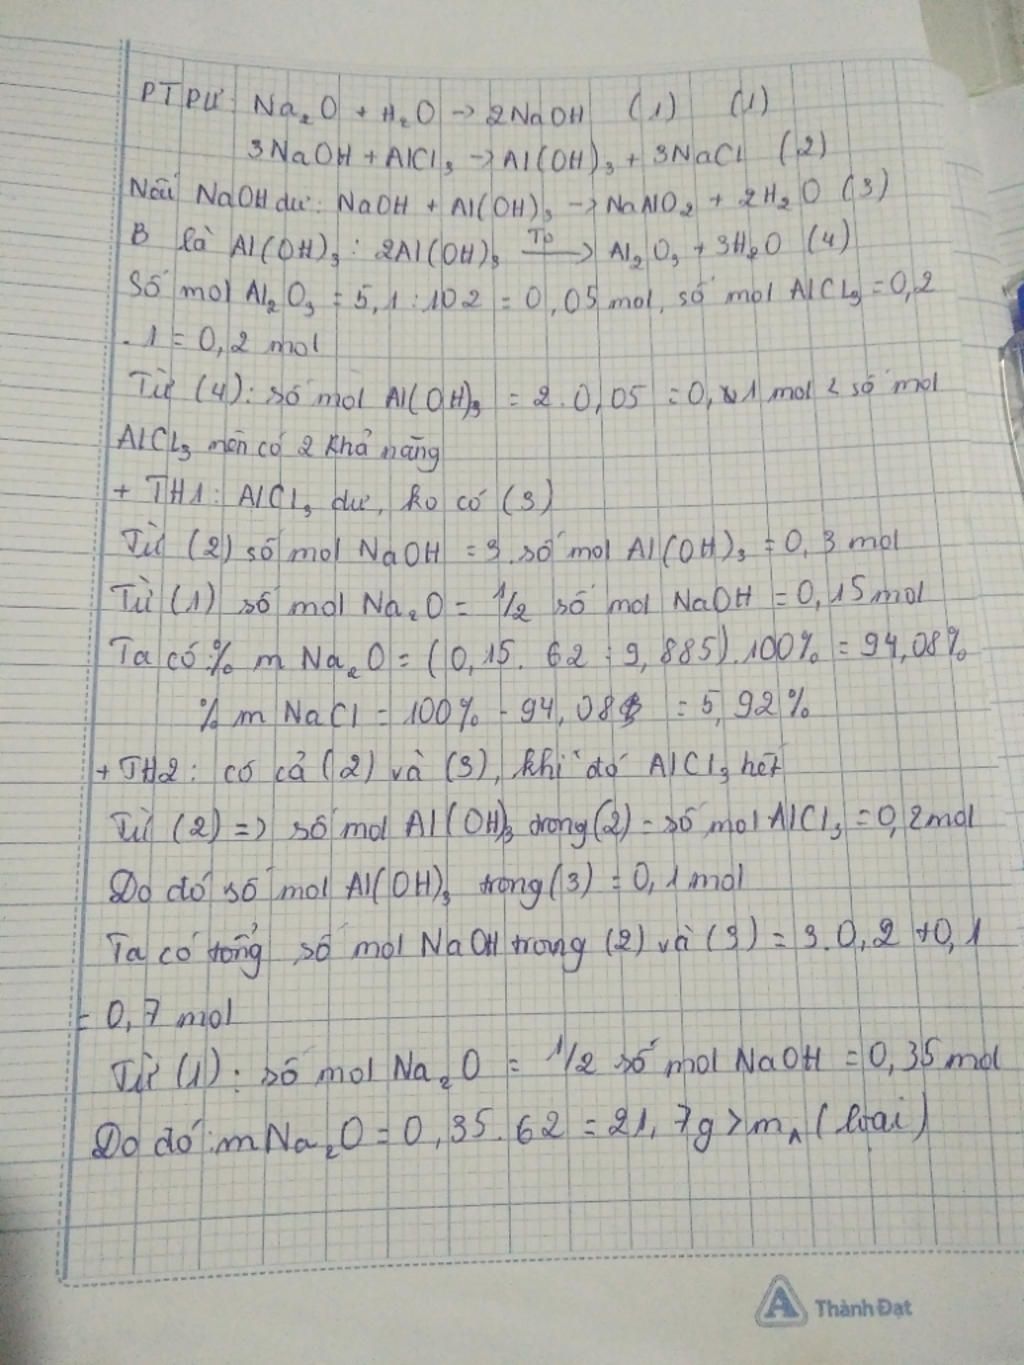 PTPƯ: Na₂O + H₂O → 2NaOH (1) (1)
3NaOH + AlCl₃ → Al(OH)₃ + 3NaCl (2)
Nếu NaOH dư: NaOH + Al(OH)₃ → NaAlO₂ + 2H₂O (3)
B là Al(OH)₃: 2Al(OH)₃ →(T⁰) Al₂O₃ + 3H₂O (4)
Số mol Al₂O₃ = 5,1 : 102 = 0,05 mol, số mol AlCl₃ = 0,2
. 1 = 0,2 mol
Từ (4): số mol Al(OH)₃ = 2.0,05 = 0,1 mol < số mol
AlCl₃ nên có 2 khả năng
+ TH1: AlCl₃ dư, ko có (3)
Từ (2) số mol NaOH = 3.số mol Al(OH)₃ = 0,3 mol
Từ (1) số mol Na₂O = 1/2 số mol NaOH = 0,15 mol
Ta có % m Na₂O = (0,15. 62 : 9,885).100% = 94,08%
% m NaCl = 100% - 94,08 = 5,92%
+ TH2: có cả (2) và (3), khi đó AlCl₃ hết
Từ (2) => số mol Al(OH)₃ trong (2) = số mol AlCl₃ = 0,2mol
Do đó số mol Al(OH)₃ trong (3) = 0,1 mol
Ta có tổng số mol NaOH trong (2) và (3) = 3.0,2 + 0,1
= 0,7 mol
Từ (1): số mol Na₂O = 1/2 số mol NaOH = 0,35 mol
Do đó: m Na₂O = 0,35.62 = 21,7g > mA (loại)
Thành Đạt